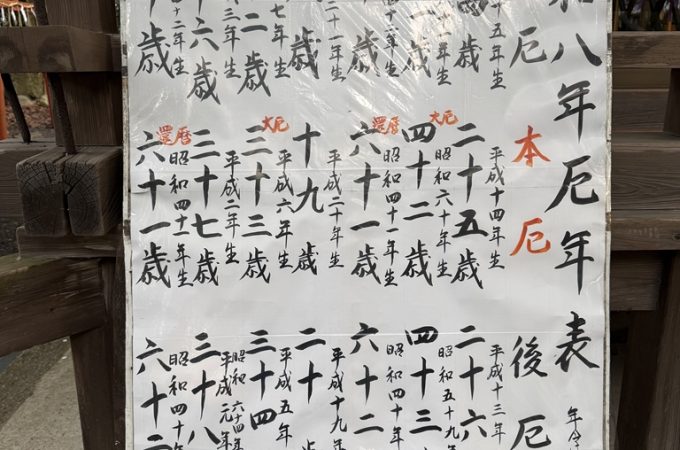 和八年厄年表
厄
十五年生
歳
十一年生
一歳
四十二年生
歳
二十一年生
歳
七年生
二歳
三年生
十六歳
十二年生
十歳
本厄
平成十四年生
二十五歳
昭和六十年生
大厄
四十二歳
昭和四十一年生
還暦
六十一歳
平成二十年生
十九歳
平成六年生
大厄
三十三歳
平成二年生
三十七歳
昭和四十一年生
還暦
六十一歳
後厄
平成十三年
二十六
昭和五十九年
四十三
昭和四十年
六十二
平成十九年
二十
平成五年
三十四
昭和六十四年
平成元年
三十八
昭和四十年
六十二